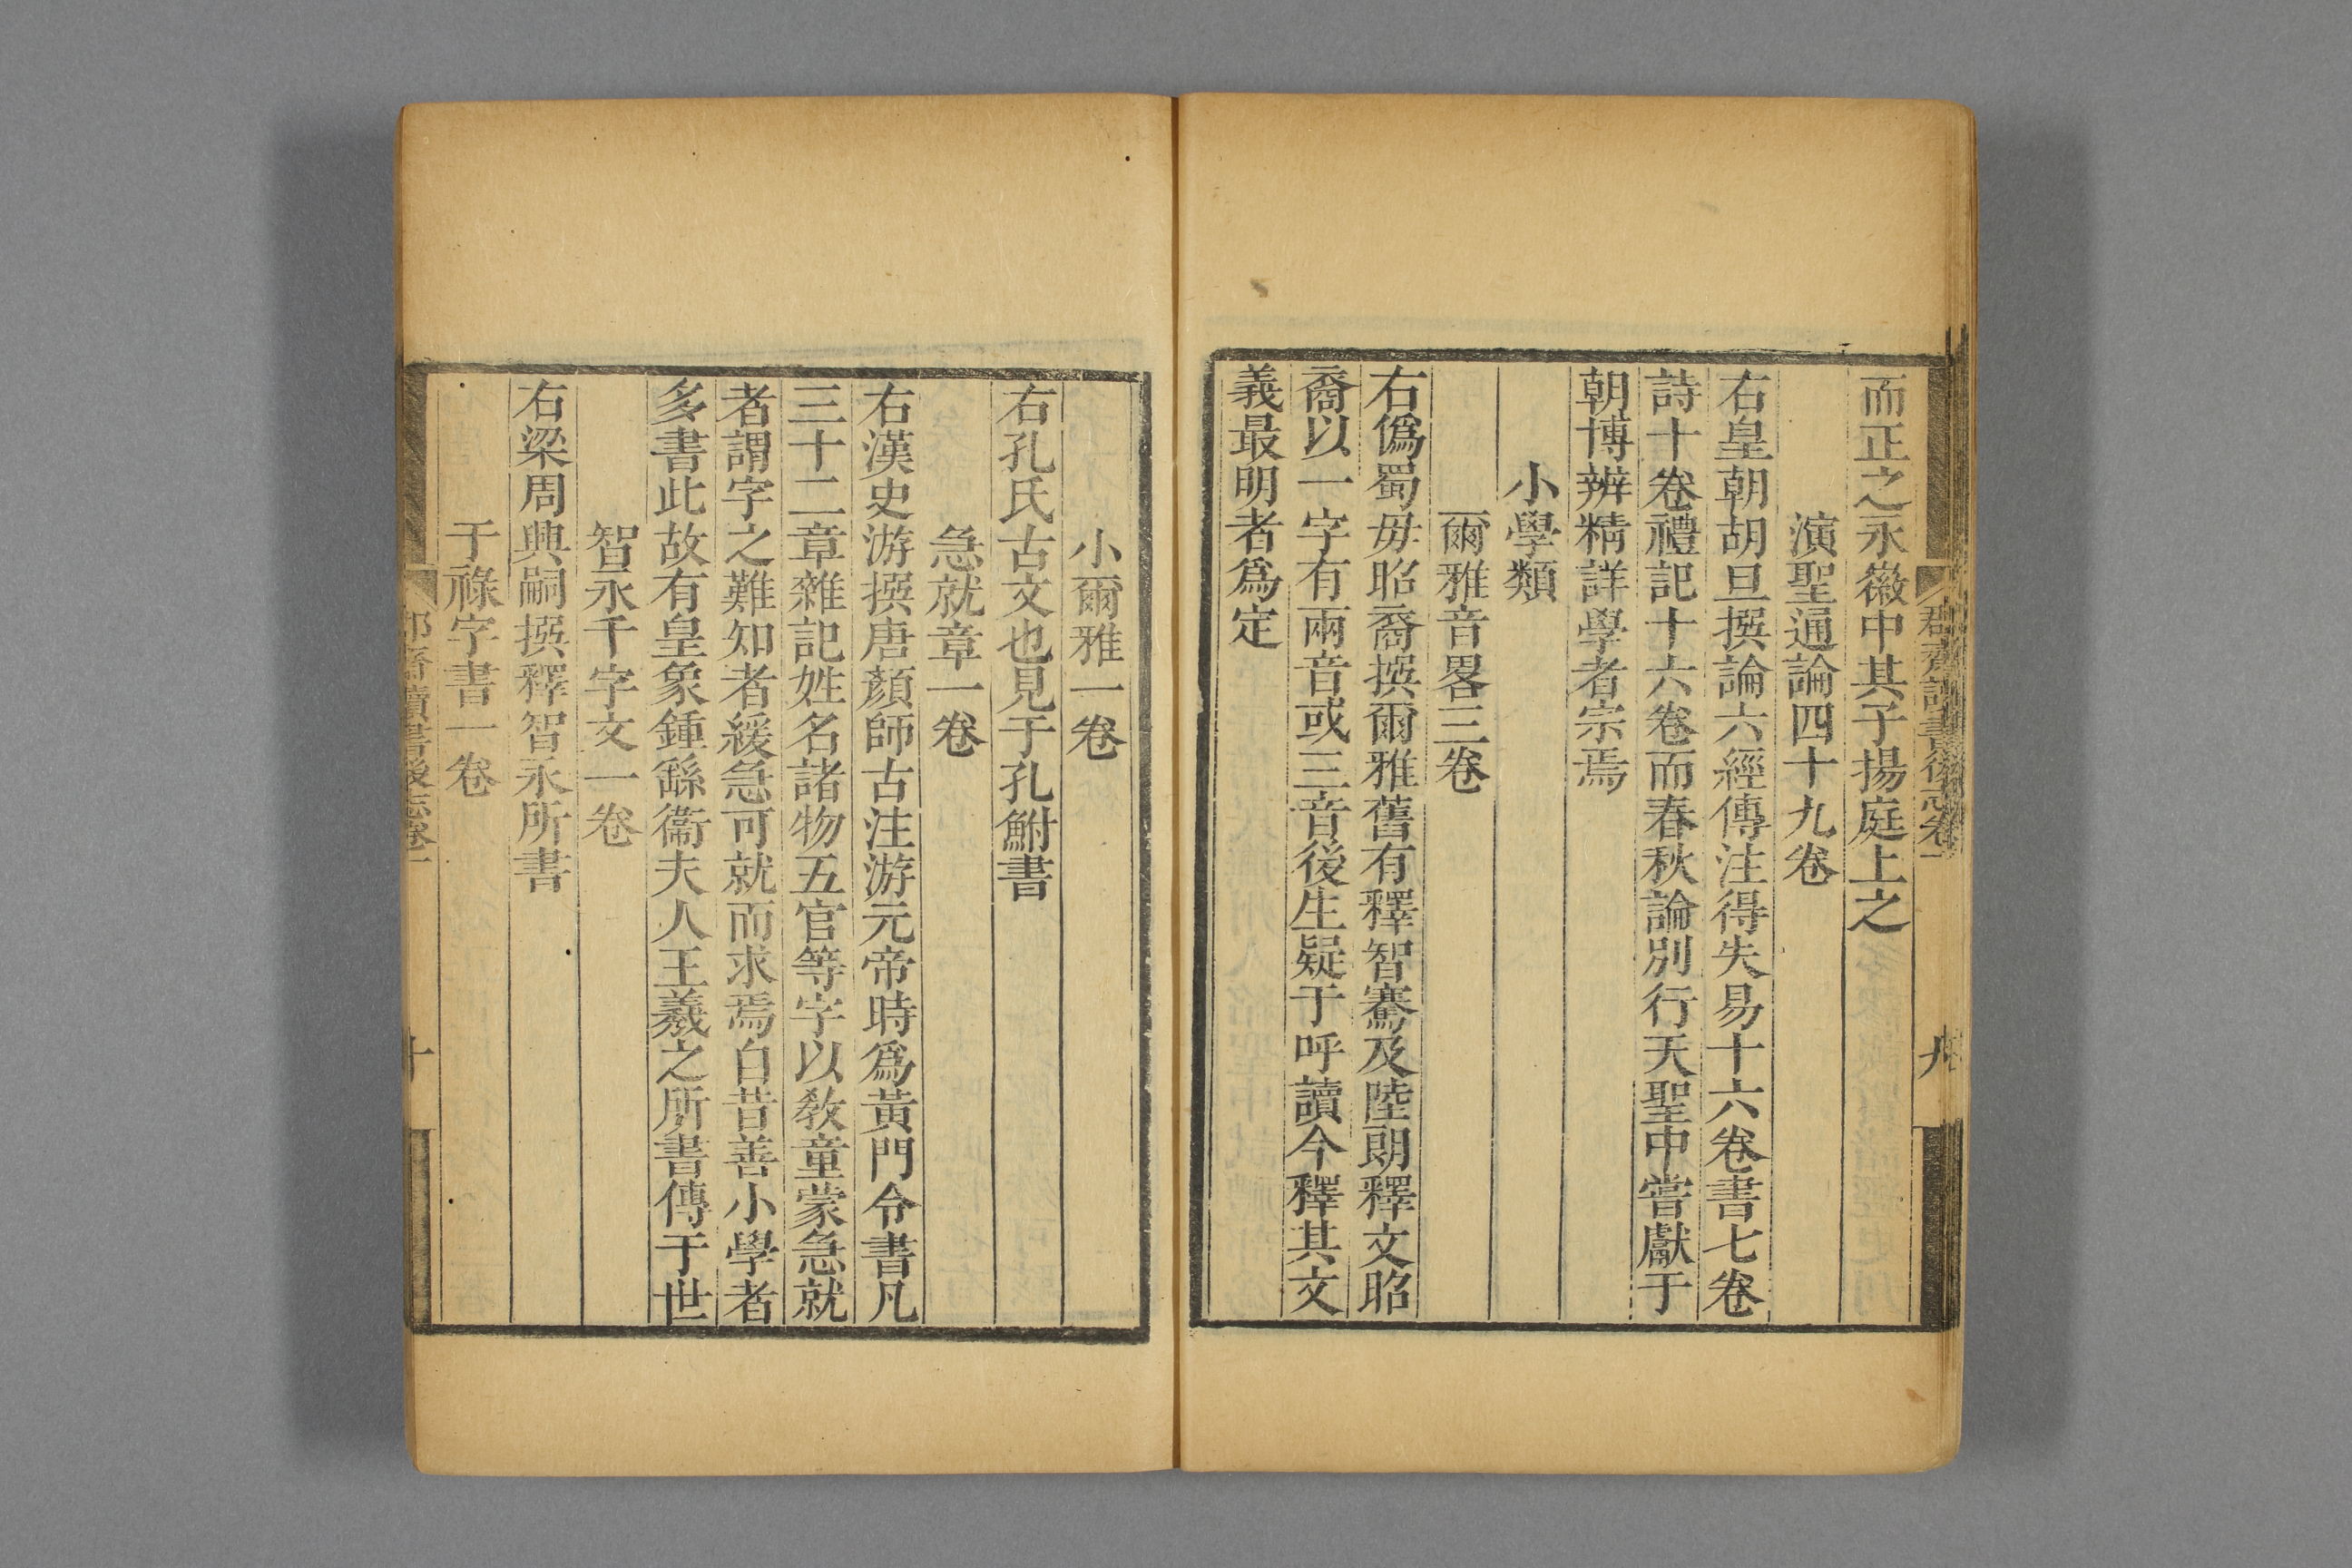 而正之永徽中其子揚庭上之
演聖通論四十九卷
右皇朝胡旦撰論六經傳注得失易十六卷書七卷
詩十卷禮記十六卷而春秋論別行天聖中嘗獻于
朝博辨精詳學者宗焉
小學類
爾雅音畧三卷
右僞蜀毋昭裔撰爾雅舊有釋智騫及陸朗釋文昭
裔以一字有兩音或三音後生疑于呼讀今釋其文
義最明者爲定
小爾雅一卷
右孔氏古文也見于孔鮒書
急就章一卷
右漢史游撰唐顏師古注游元帝時爲黃門令書凡
三十二章雜記姓名諸物五官等字以敎童蒙急就
者謂字之難知者緩急可就而求焉自昔善小學者
多書此故有皇象鍾繇衞夫人王羲之所書傳于世
智永千字文一卷
右梁周興嗣撰釋智永所書
干祿字書一卷
郡齋讀書後志卷一
九